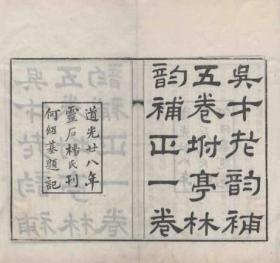 吳才老韵補
五卷坿亭林
韵補正一卷
道光廿八年
靈石楊氏刊
何紹基題記